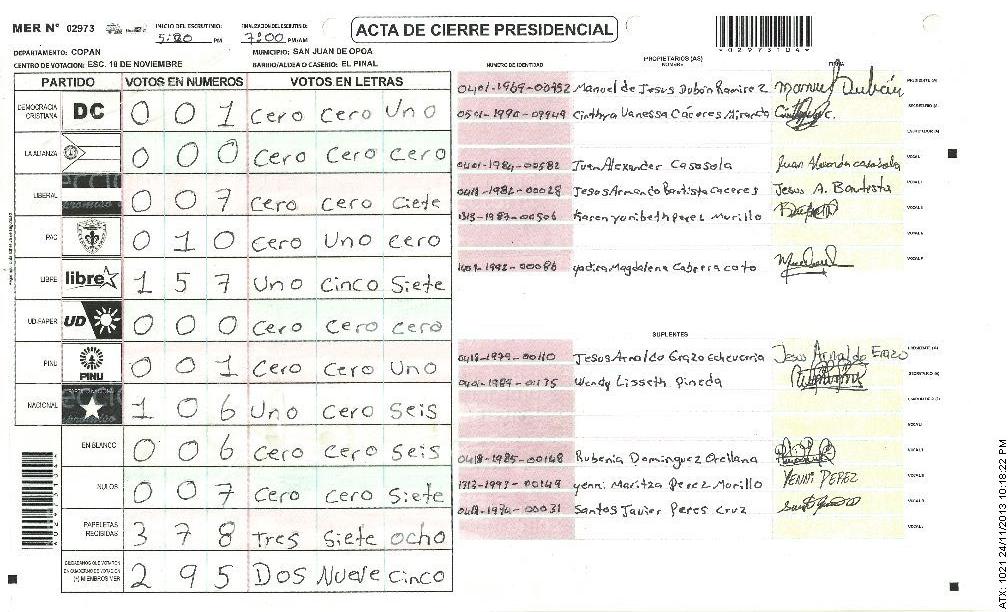 MER Nº 02973
INICIO DEL ESCRUTINIO: 5:20 PM
FINALIZACION DEL ESCRUTINIO: 7:00 PM/AM
ACTA DE CIERRE PRESIDENCIAL
*02973104*
DEPARTAMENTO: COPAN
MUNICIPIO: SAN JUAN DE OPOA
CENTRO DE VOTACION: ESC. 18 DE NOVIEMBRE
BARRIO/ALDEA O CASERIO: EL PINAL
PARTIDO VOTOS EN NUMEROS VOTOS EN LETRAS
DEMOCRACIA CRISTIANA DC 0 0 1 Cero Cero Uno
LA ALIANZA 0 0 0 Cero Cero Cero
LIBERAL 0 0 7 Cero Cero Ciete
PAC 0 1 0 Cero Uno Cero
LIBRE libre 1 5 7 Uno Cinco Siete
UD-FAPER UD 0 0 0 Cero Cero Cero
PINU PINU 0 0 1 Cero Cero Uno
NACIONAL 1 0 6 Uno Cero Seis
EN BLANCO 0 0 6 Cero Cero Seis
NULOS 0 0 7 Cero Cero Siete
PAPELETAS RECIBIDAS 3 7 8 Tres Siete Ocho
CIUDADANOS QUE VOTARON EN CUADERNO DE VOTACION (+) MIEMBROS MER 2 9 5 DOS Nueve Cinco
PROPIETARIOS (AS)
NUMERO DE IDENTIDAD NOMBRE FIRMA
Manuel de Jesus Dubón Ramirez Manuel Dubón PRESIDENTE (A)
Cinthya Vanessa Cáceres Miranda SECRETARIO (A)
ESCRUTADOR (A)
0401-1984-00582 Juan Alexander Casasola Juan Alexander casasola VOCAL
0418-1982-00028 Jesus Armando Bautista Caceres Jesus A. Bautista VOCAL
1313-1987-00506 Karen yanibeth perez Murillo VOCAL
VOCAL
yadira Magdalena Cabrera coto VOCAL
SUPLENTES
0418-1979-00110 Jesus Arnaldo Erazo Echeverria Jesus Arnaldo Erazo
0401-1989-01135 Wendy Lisseth Pineda SECRETARIO (A)
0418-1985-00168 Rubenia Dominguez Orellana VOCAL
1313-1993-00149 yenni Maritza Perez Murillo YENNI PEREZ VOCAL
0418-1974-00031 Santos Javier Peres Cruz VOCAL
VOCAL
ATX: 1021 24/11/2013 10:18:22 PM